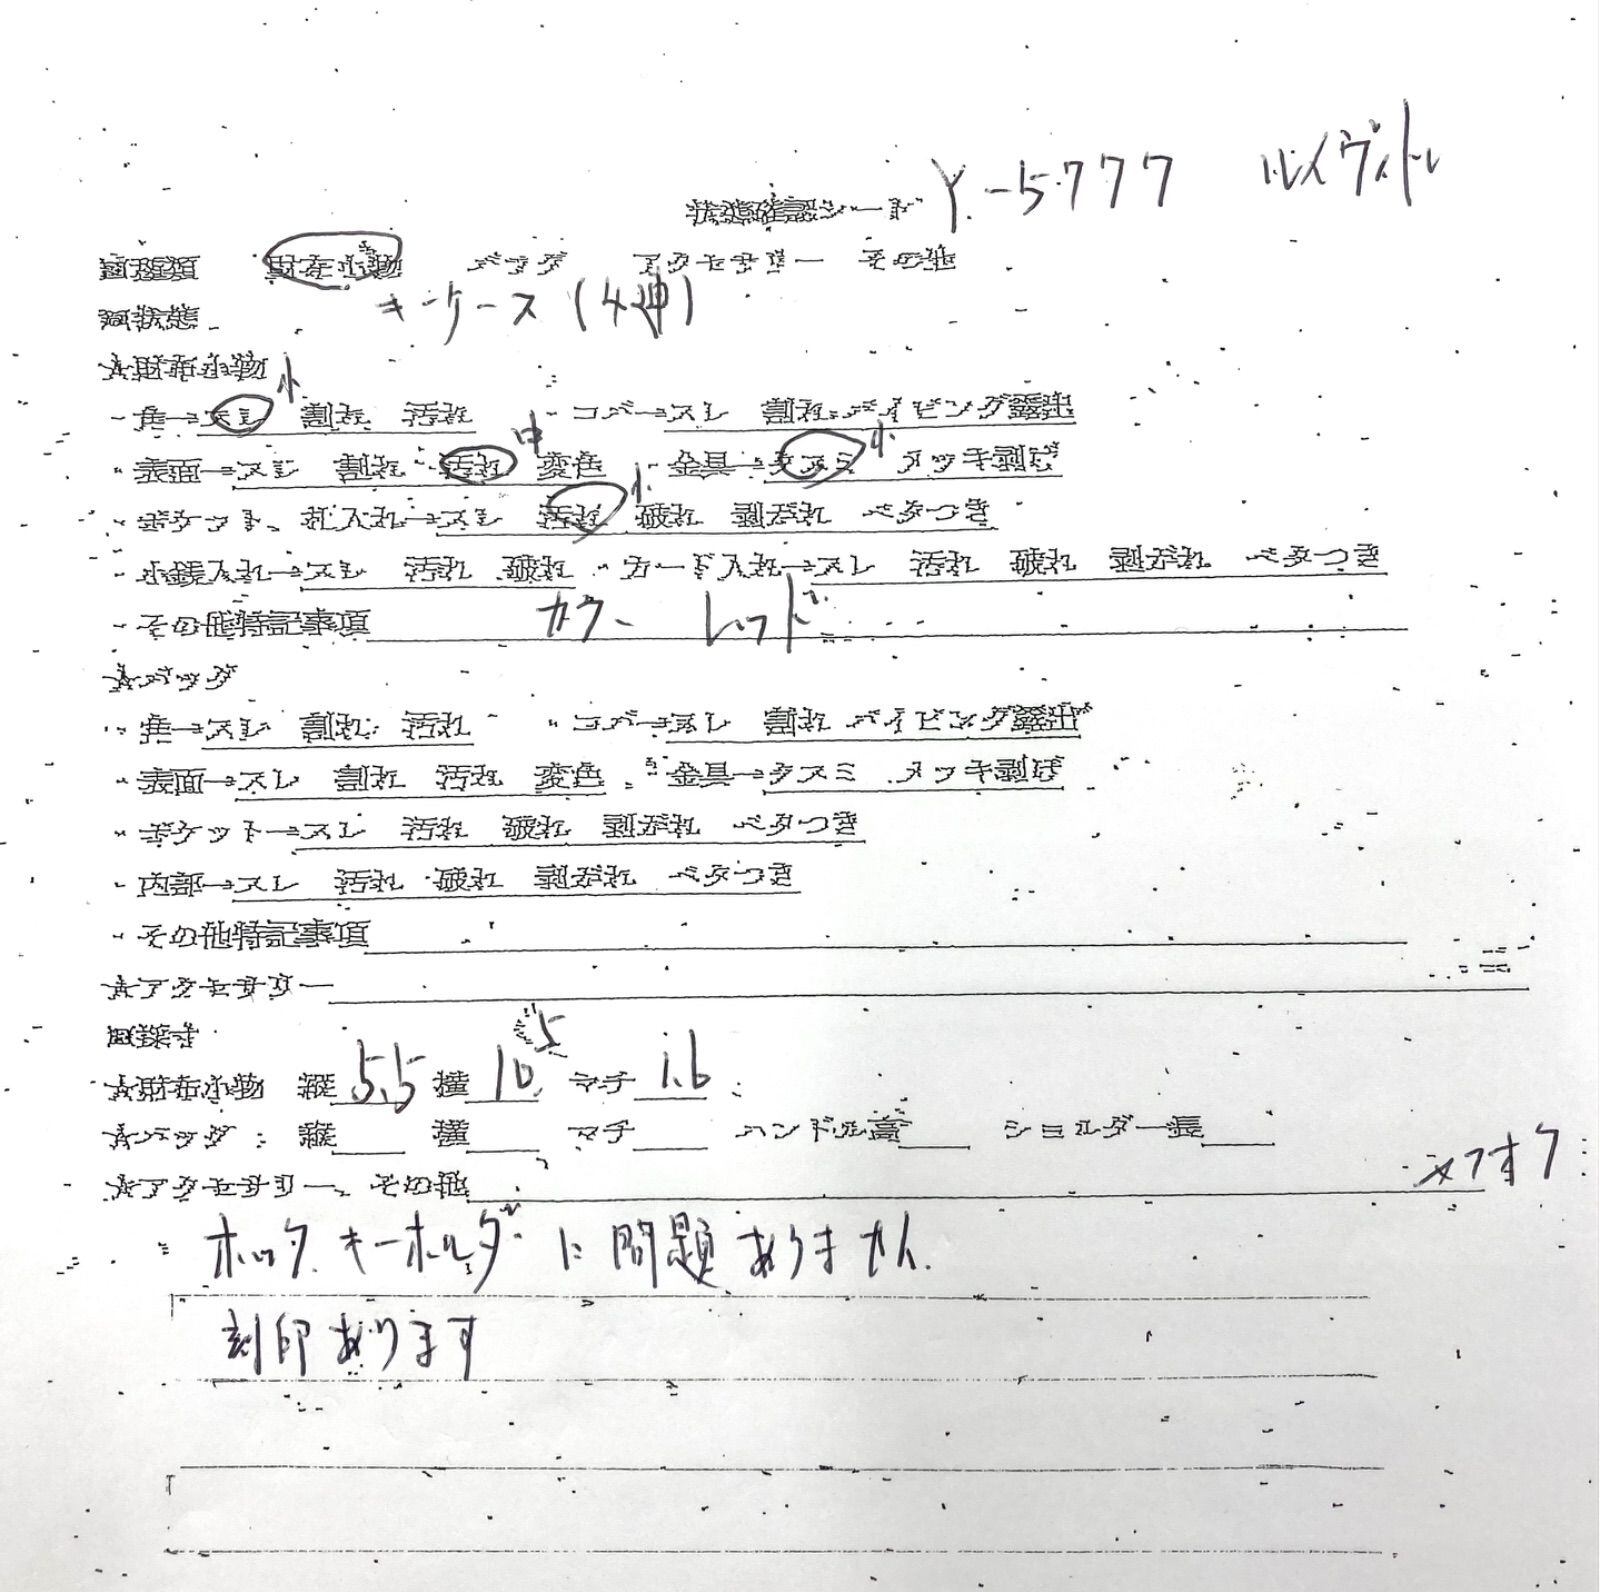 状態確認シート Y-5777 ルイヴィトン
種類 財布小物 バッグ アクセサリー その他
状態 キーケース(4連)
☆財布小物 小
・角→スレ 割れ 汚れ ・コバ→スレ 割れ パイピング露出
・表面→スレ 割れ 汚れ 中 変色 ・金具→クスミ 小 メッキ剥げ
・ポケット、札入れ→スレ 汚れ 小 破れ 剥がれ ベタつき
・小銭入れ→スレ 汚れ 破れ ・カード入れ→スレ 汚れ 破れ 剥がれ ベタつき
・その他特記事項 カラー レッド
☆バッグ
・角→スレ 割れ 汚れ ・コバ→スレ 割れ パイピング露出
・表面→スレ 割れ 汚れ 変色 ・金具→クスミ メッキ剥げ
・ポケット→スレ 汚れ 破れ 剥がれ ベタつき
・内部→スレ 汚れ 破れ 剥がれ ベタつき
・その他特記事項
☆アクセサリー
採寸
☆財布小物 縦 5.5 横 10.5 マチ 1.6
☆バッグ: 縦 横 マチ ハンドル高 ショルダー長
☆アクセサリー、その他 ヤフオク
ホック、キーホルダーに問題ありません.
刻印あります